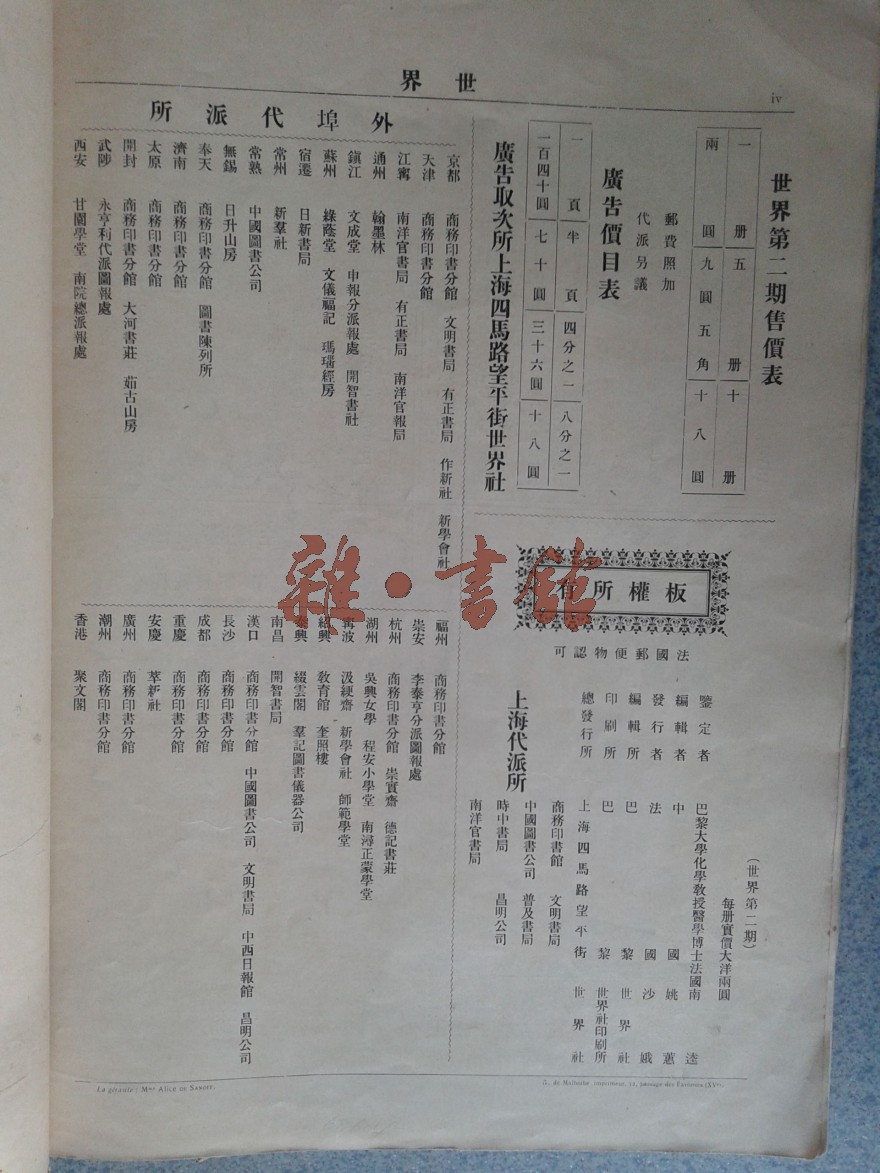 世界
iv
世界第二期售價表
一册 五册 十册
兩圓 九圓五角 十八圓
郵費照加
代派另議
廣告價目表
一頁 半頁 四分之一 八分之一
一百四十圓 七十圓 三十六圓 十八圓
廣告取次所上海四馬路望平街世界社
板權所有
法國郵便物認可
(世界第二期)
每册實價大洋兩圓
鑒定者 巴黎大學化學教授醫學博士法國南逵
編輯者 中國姚蕙
發行者 法國沙娥
編輯所 巴黎世界社
印刷所 巴黎世界社印刷所
總發行所 上海四馬路望平街世界社
上海代派所
商務印書館 文明書局
中國圖書公司 普及書局
時中書局 昌明公司
南洋官書局
外埠代派所
京都 商務印書分館 文明書局 有正書局 作新社 新學會社
天津 商務印書分館
江寗 南洋官書局 有正書局 南洋官報局
通州 翰墨林
鎭江 文成堂 申報分派報處 開智書社
蘇州 綠蔭堂 文儀福記 瑪瑙經房
宿遷 日新書局
常州 新羣社
常熟 中國圖書公司
無錫 日升山房
奉天 商務印書分館 圖書陳列所
濟南 商務印書分館
太原 商務印書分館
開封 商務印書分館 大河書莊 茹古山房
武陟 永亨利代派圖報處
西安 甘園學堂 南院總派報處
福州 商務印書分館
崇安 李泰亨分派圖報處
杭州 商務印書分館 崇實齋 德記書莊
湖州 吳興女學 程安小學堂 南潯正蒙學堂
寗波 汲綆齋 新學會社 師範學堂
紹興 敎育館 奎照樓
泰興 綴雲閣 羣記圖書儀器公司
南昌 開智書局
漢口 商務印書分館 中國圖書公司 文明書局 中西日報館 昌明公司
長沙 商務印書分館
成都 商務印書分館
重慶 商務印書分館
安慶 萃新社
廣州 商務印書分館
潮州 商務印書分館
香港 聚文閣
La gérante : Mme ALICE DE SANDIT.
G. de Malherbe, imprimeur, 12, passage des Favorites (XVe).
雜·書館